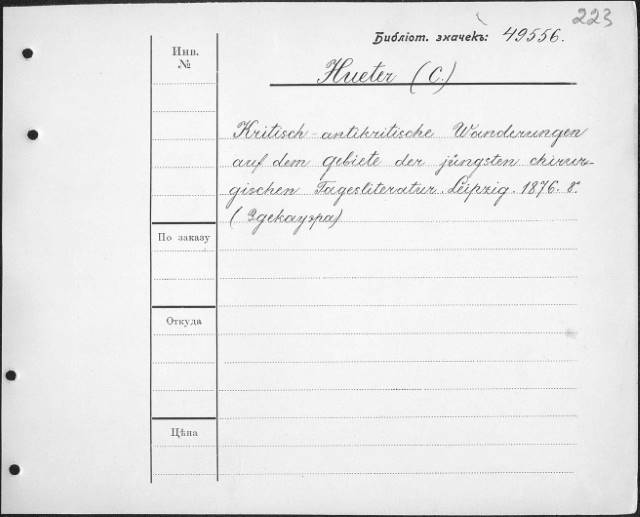 223
Библіот. значекъ: 49556.
Инв.
№
Hueter (C.)
Kritisch-antikritische Wanderungen
auf dem gebiete der jüngsten chirur-
gischen Tagesliteratur. Leipzig. 1876. 8.
(Здекауэра)
По заказу
Откуда
Цѣна